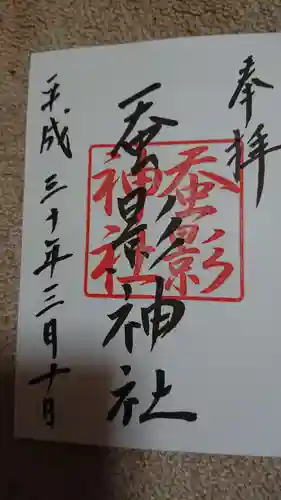 奉拝
蚕影神社
蚕影
神社
平成三十年三月十日